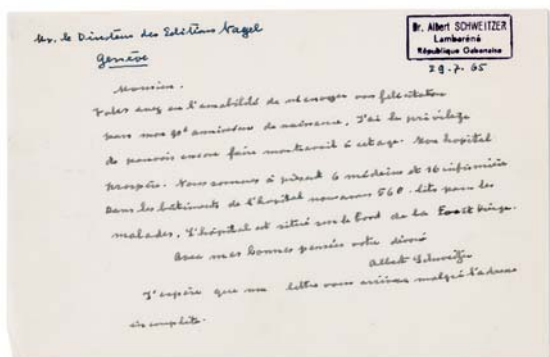 Mr. le Directeur des Editions Nagel
Genève
Dr. Albert SCHWEITZER
Lambaréné
République Gabonaise
29.7.65
Monsieur.
Vous avez eu l'amabilité de m'envoyer vos felicitation
pour mon 90e anniversaire de naissance. J'ai le privilège
de pouvoir encore faire mon travail à cet age. Mon hopital
prospère. Nous sommes à présent 6 médecins et 16 infirmières
Dans les bâtiments de l'hopital nous avons 560 lits pour les
malades. L'hôpital est situé sur le bord de la Forêt Vierge.
Avec mes bonnes pensées votre dévoué
Albert Schweitzer
J'espère que ma lettre vous arrivera malgré l'adresse
incomplète.